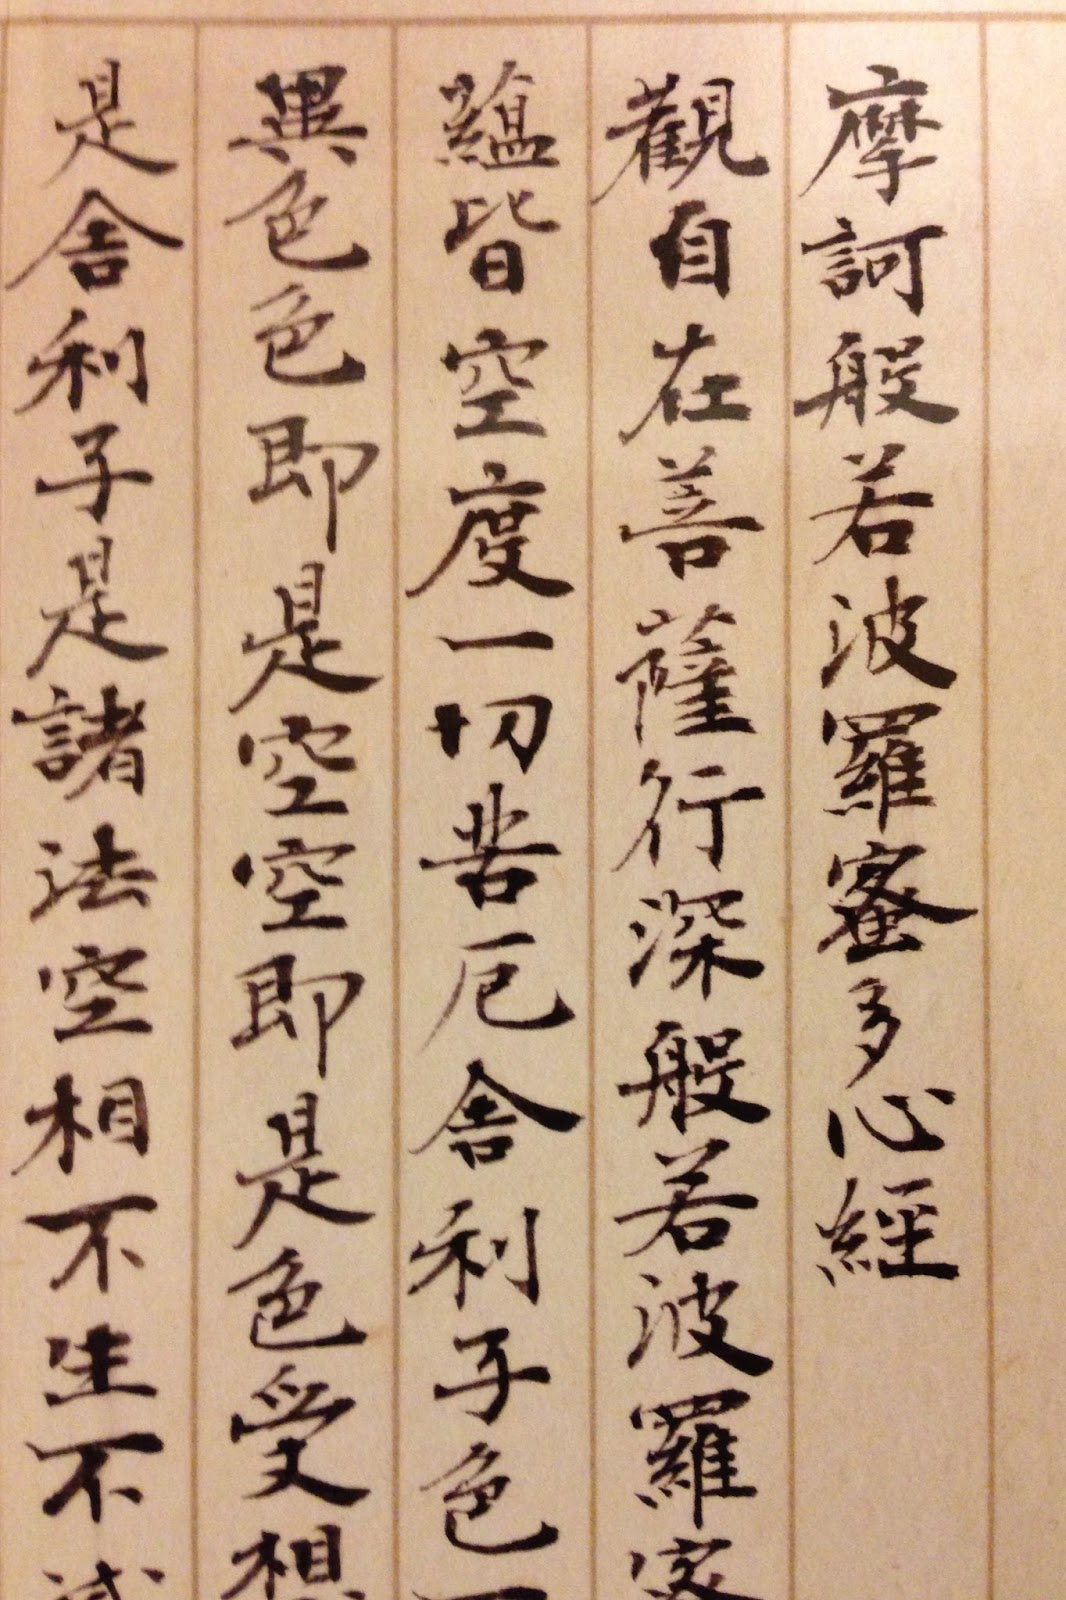 摩訶般若波羅蜜多心經
觀自在菩薩行深般若波羅
蘊皆空度一切苦厄舍利子色
異色色即是空空即是色受想
是舍利子是諸法空相不生不